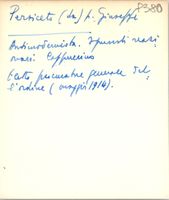 P380
Persiceto (da) p. Giuseppe
Antimodernista. Spunti vari
vari Cappuccino
Eletto procuratore generale del-
l'ordine (maggio 1914).